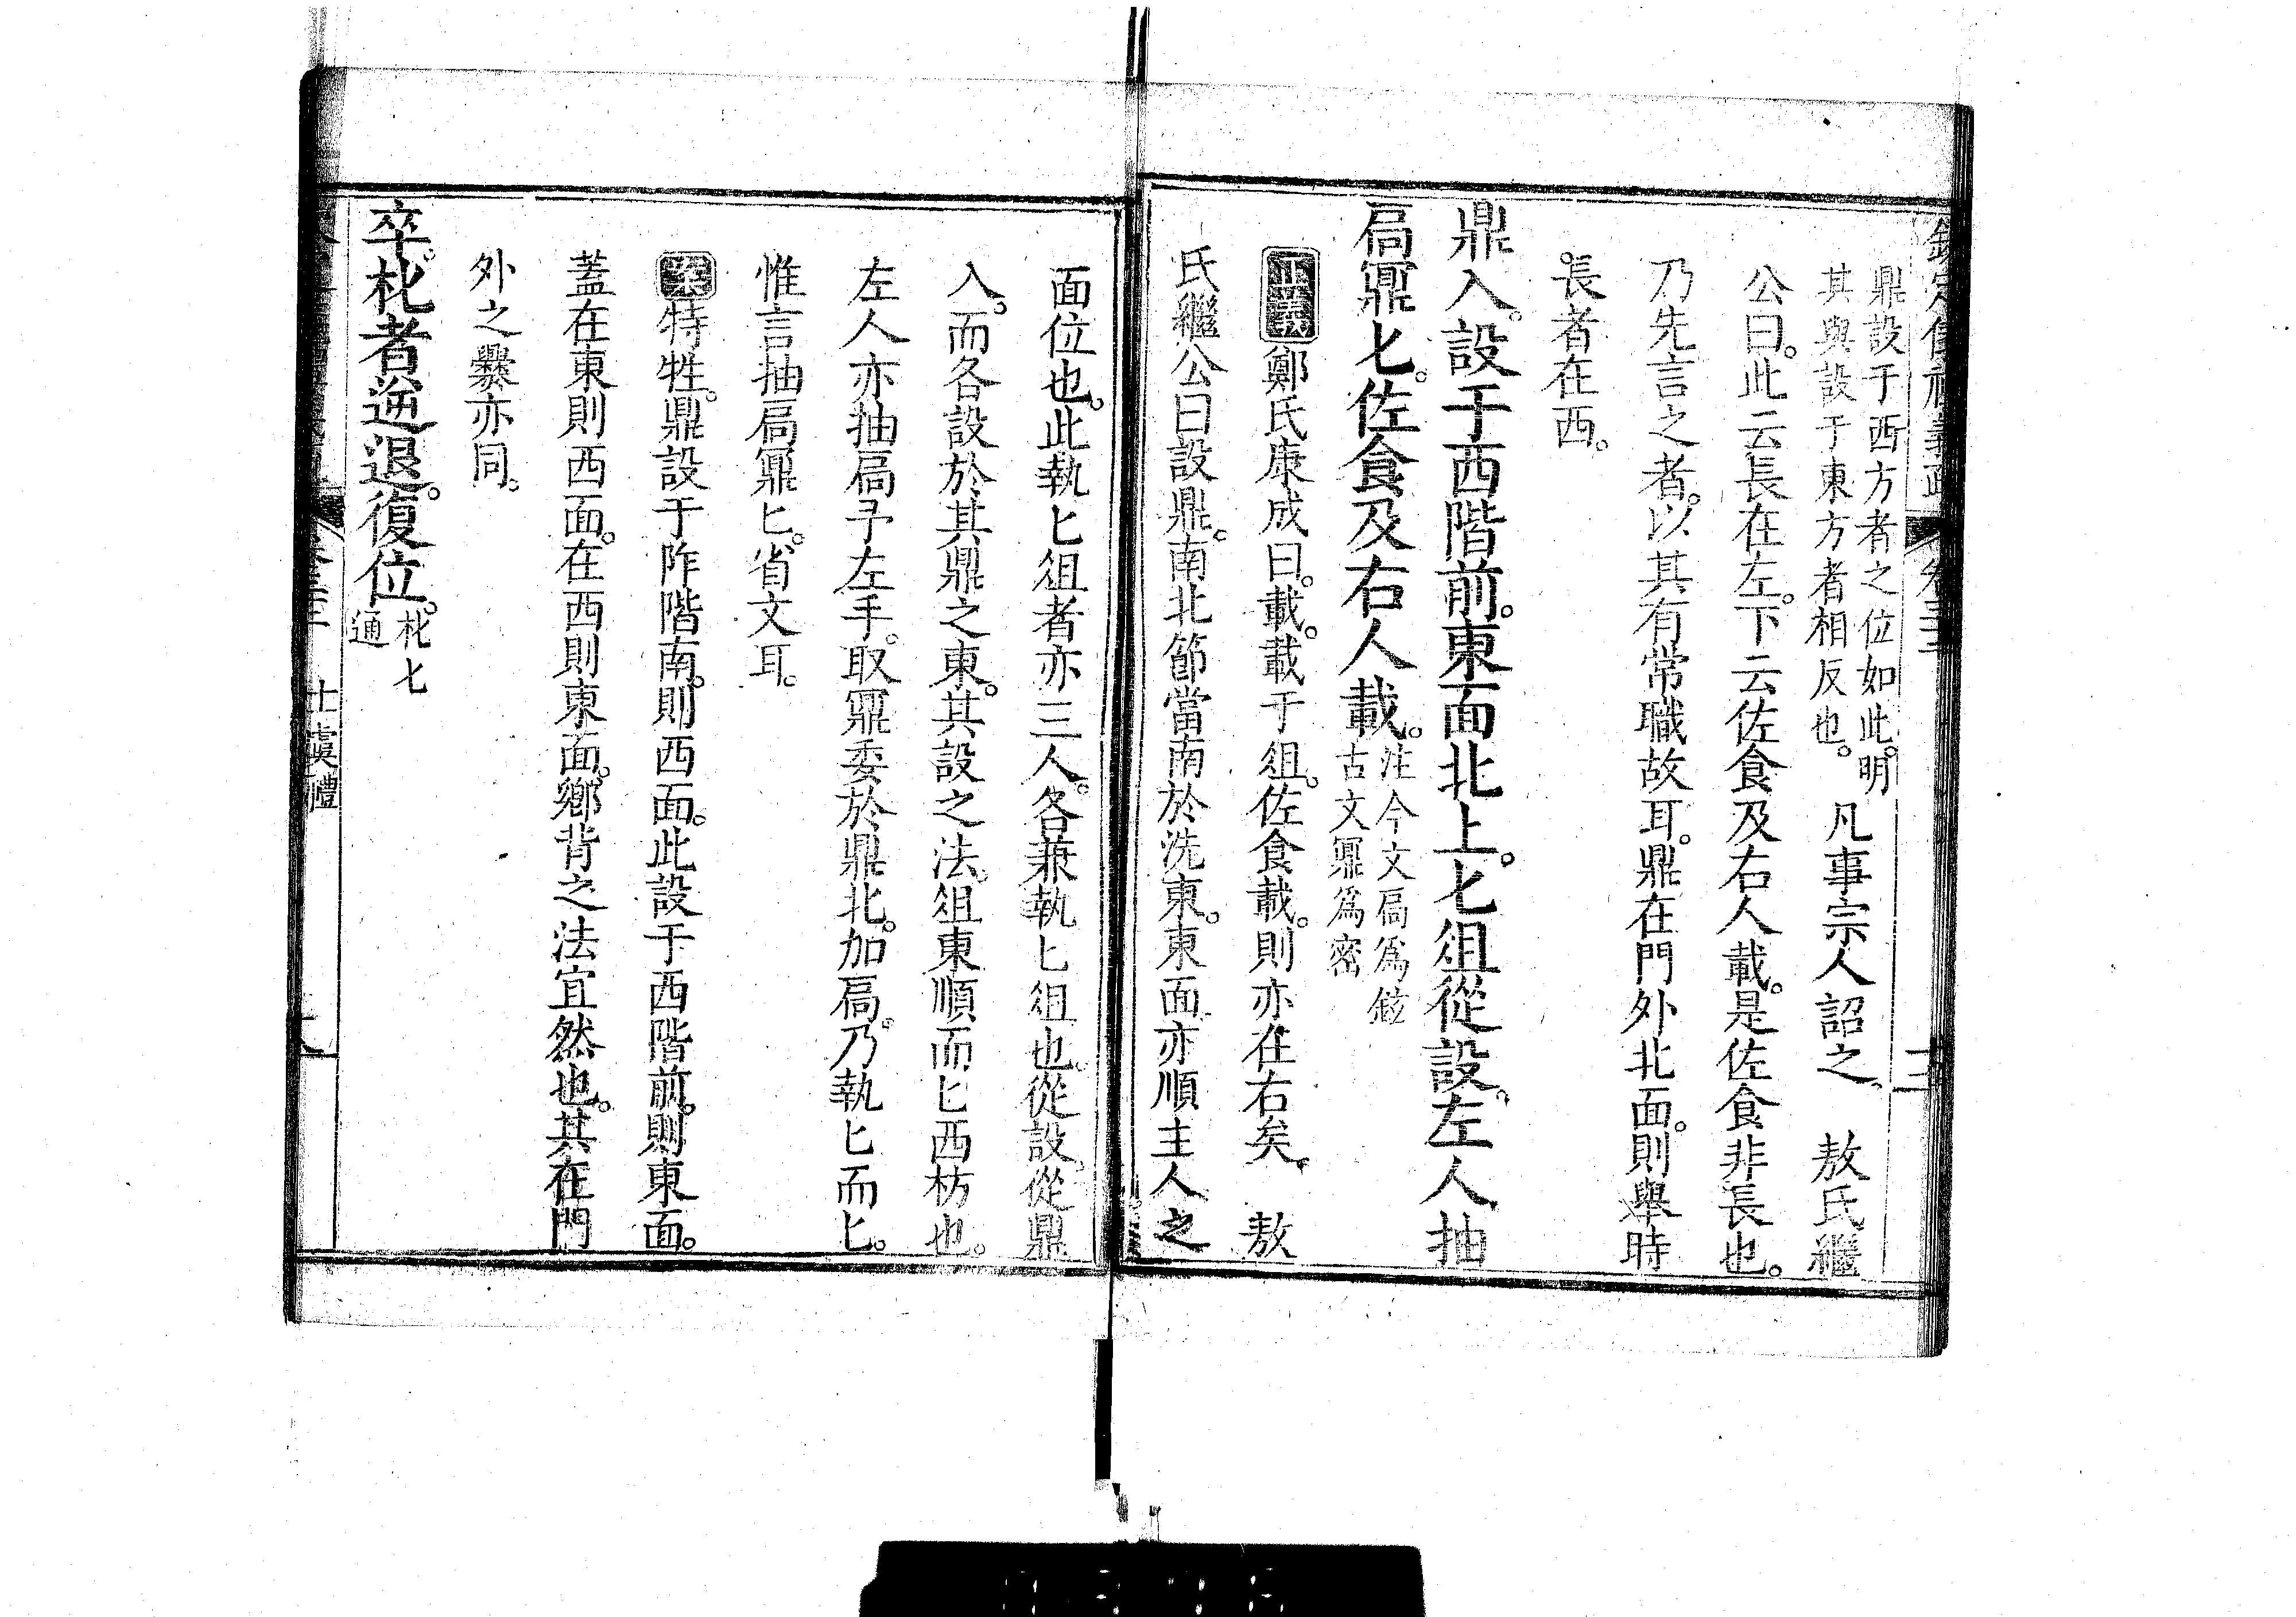 欽定儀禮義疏 卷三十三
鼎設于西方者之位如此。明
其與設于東方者相反也。
凡事宗人詔之。 敖氏繼
公曰。此云長在左。下云佐食及右人載。是佐食非長也。
乃先言之者。以其有常職故耳。鼎在門外北面。則舉時
長者在西。
鼎入。設于西階前。東面北上。匕俎從設。左人抽
扃鼏匕。佐食及右人載。
注今文扃爲鉉
古文鼏爲密
正義鄭氏康成曰。載。載于俎。佐食載。則亦在右矣。 敖
氏繼公曰設鼎。南北節當南於洗東。東面亦順主人之
面位也。此執匕俎者亦三人。各兼執匕俎也。從設。從鼎
入。而各設於其鼎之東。其設之法。俎東順而匕西枋也。
左人亦抽扃予左手。取鼏委於鼎北。加扃。乃執匕而匕。
惟言抽扃鼏匕。省文耳。
案特牲。鼎設于阼階南。則西面。此設于西階前。則東面。
蓋在東則西面。在西則東面。鄉背之法宜然也。其在門
外之爨亦同。
卒。朼者逆退。復位。
朼匕
通
士虞禮